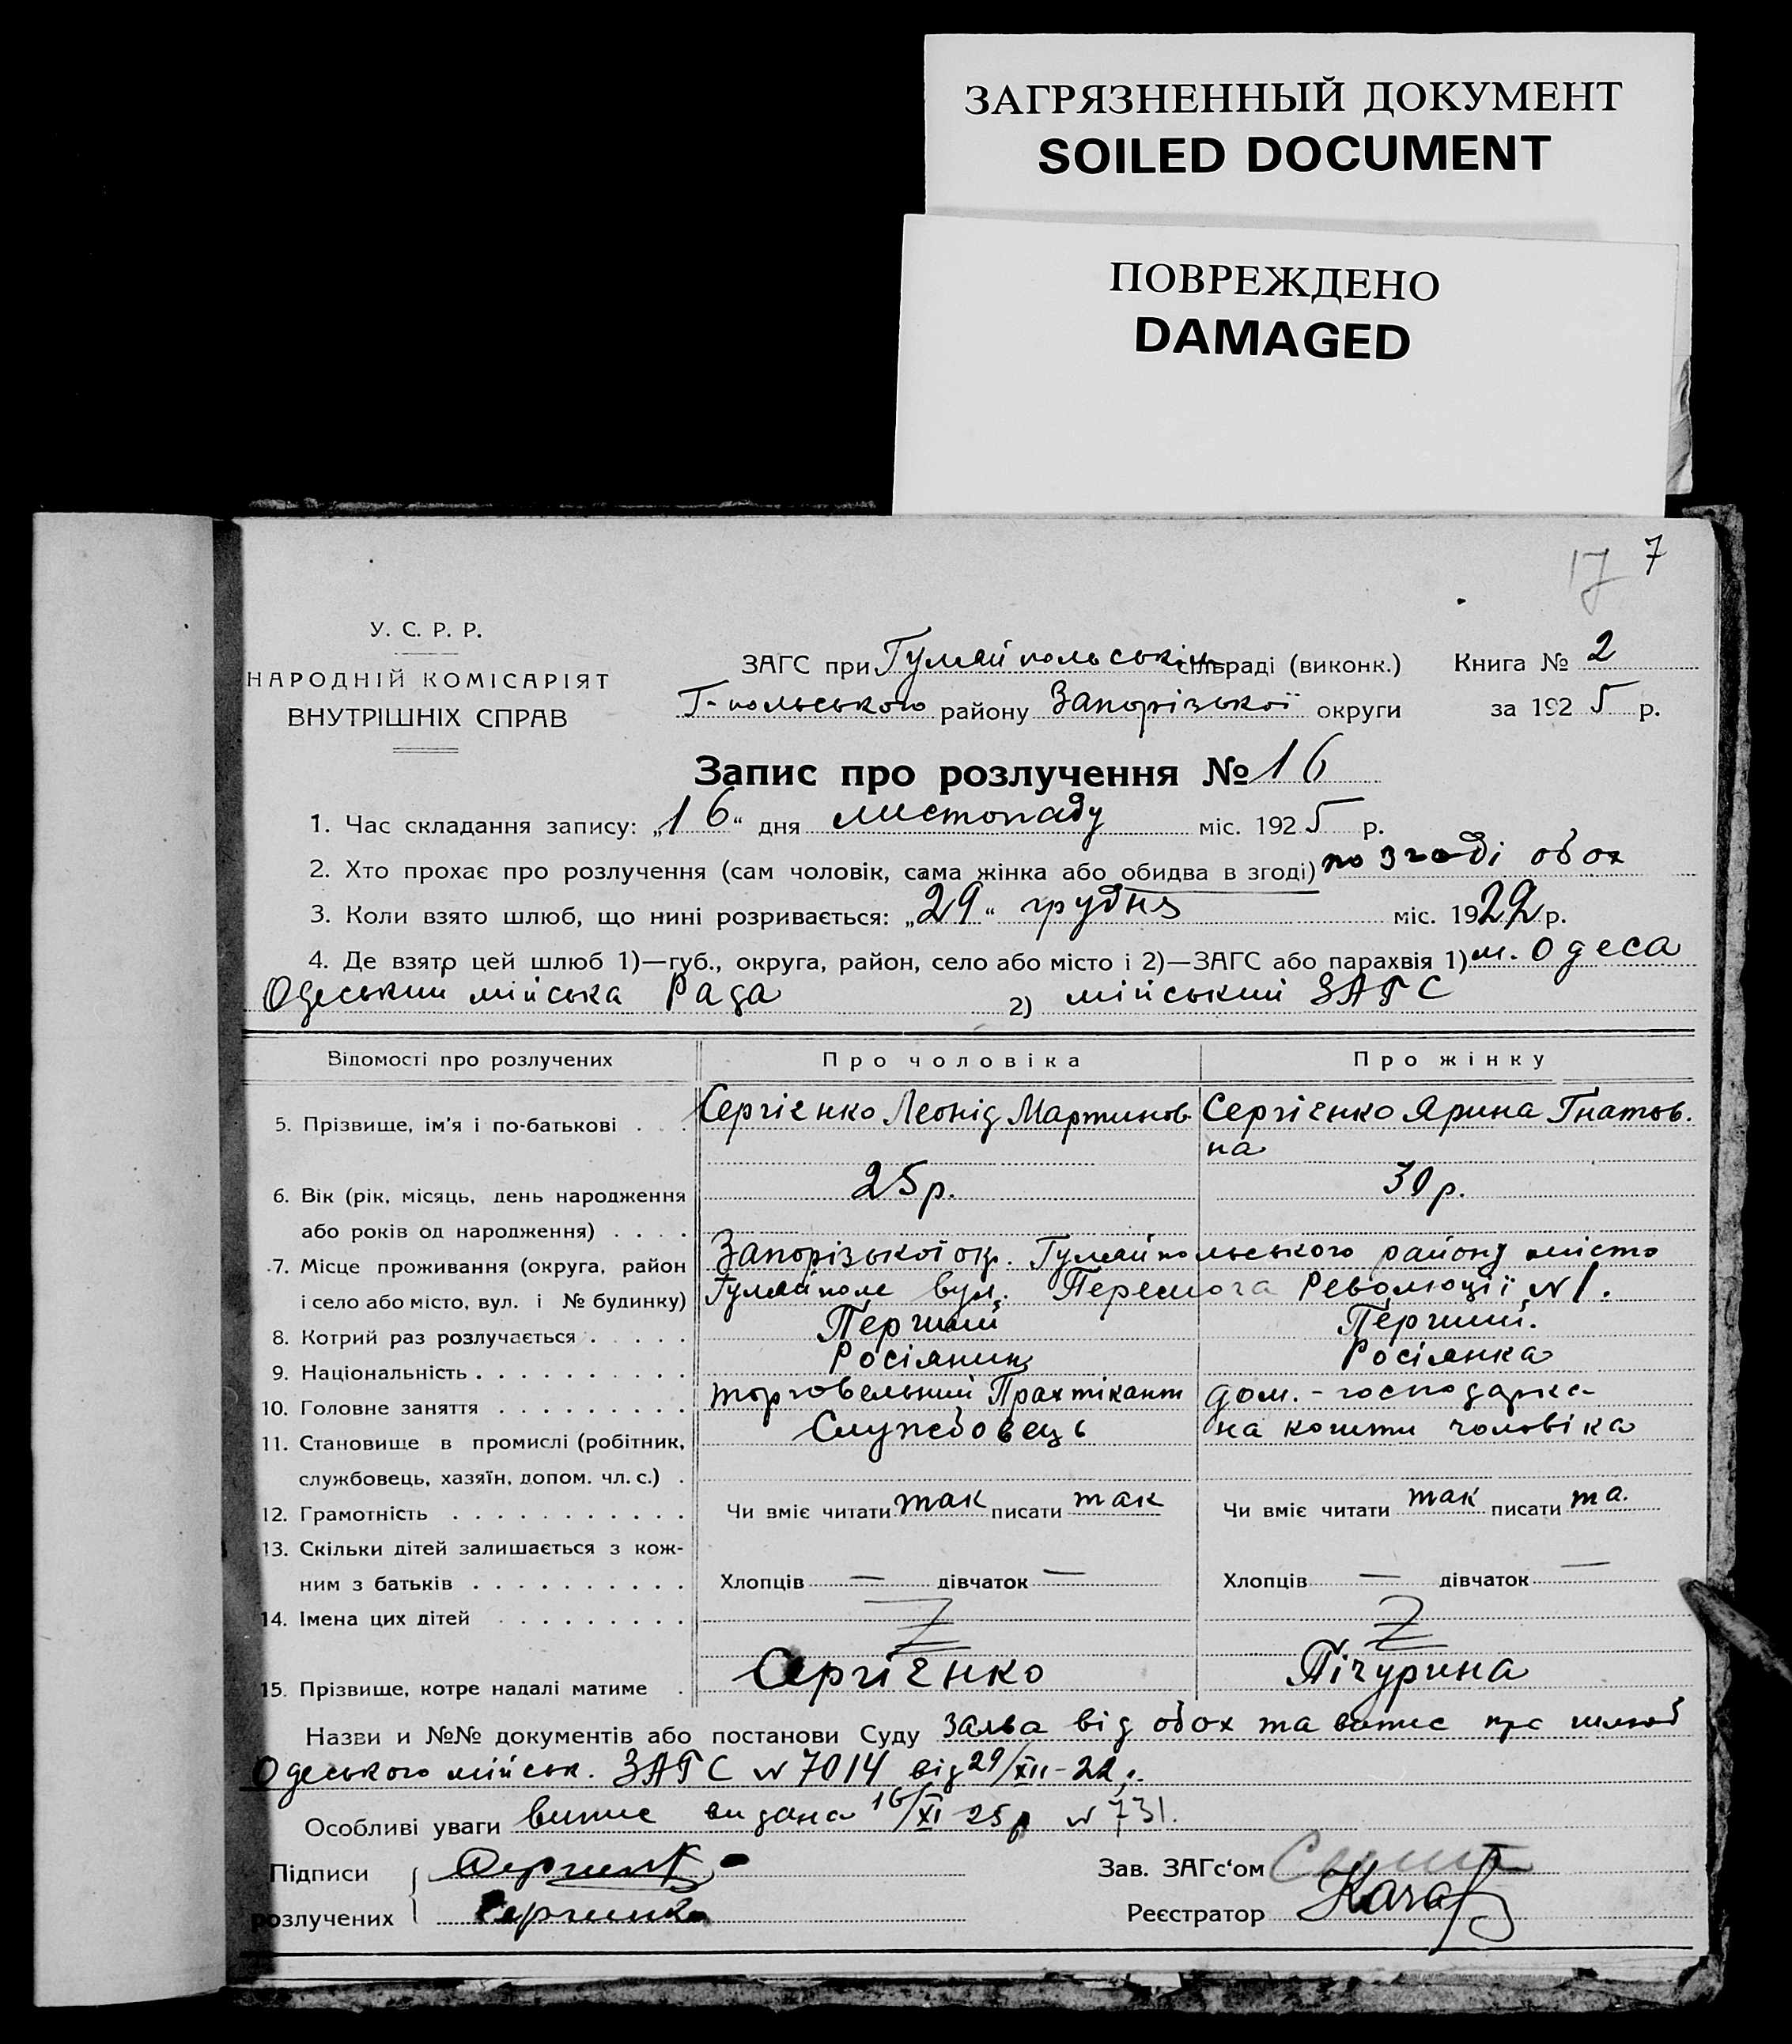 ЗАГРЯЗНЕННЫЙ ДОКУМЕНТ
SOILED DOCUMENT
ПОВРЕЖДЕНО
DAMAGED
17 7
У. С. Р. Р.
НАРОДНІЙ КОМІСАРІЯТ
ВНУТРІШНІХ СПРАВ
ЗАГС при Гуляйпольськім сільраді (виконк.) Книга № 2
Г-польського району Запорізької округи за 1925 р.
Запис про розлучення № 16
1. Час складання запису: „16“ дня листопаду міс. 1925 р.
2. Хто прохає про розлучення (сам чоловік, сама жінка або обидва в згоді) по згоді обох
3. Коли взято шлюб, що нині розривається: „29“ грудня міс. 1922 р.
4. Де взято цей шлюб 1)—губ., округа, район, село або місто і 2)—ЗАГС або парахвія 1) м. Одеса
Одеський мійська Рада 2) мійський ЗАГС
Відомості про розлучених Про чоловіка Про жінку
5. Прізвище, ім'я і по-батькові . . . Сергієнко Леонід Мартинов Сергієнко Ярина Гнатов.
на
6. Вік (рік, місяць, день народження 25 р. 30 р.
або років од народження) . . . .
7. Місце проживання (округа, район Запорізької окр. Гуляйпольського району місто
і село або місто, вул. і № будинку) Гуляйполе вул. Перемога Революції № 1.
8. Котрий раз розлучається . . . . . Перший Перший.
9. Національність . . . . . . . . . . Росіянин Росіянка
10. Головне заняття . . . . . . . . . торговельний Практікант дом. - господарка
11. Становище в промислі (робітник, Служебовець на кошти чоловіка
службовець, хазяїн, допом. чл. с.) .
12. Грамотність . . . . . . . . . . . Чи вміє читати так писати так Чи вміє читати так писати та.
13. Скільки дітей залишається з кож-
ним з батьків . . . . . . . . . . Хлопців — дівчаток — Хлопців — дівчаток —
14. Імена цих дітей . . . . . . . . .
15. Прізвище, котре надалі матиме . Сергієнко Пічурина
Назви и №№ документів або постанови Суду заява від обох та витис про шлюб
Одеського мійськ. ЗАГС № 7014 від 29/XII-22 р.
Особливі уваги витис видана 16/XI 25 р № 731.
Підписи Зав. ЗАГс'ом
розлучених Сергиенко Реєстратор